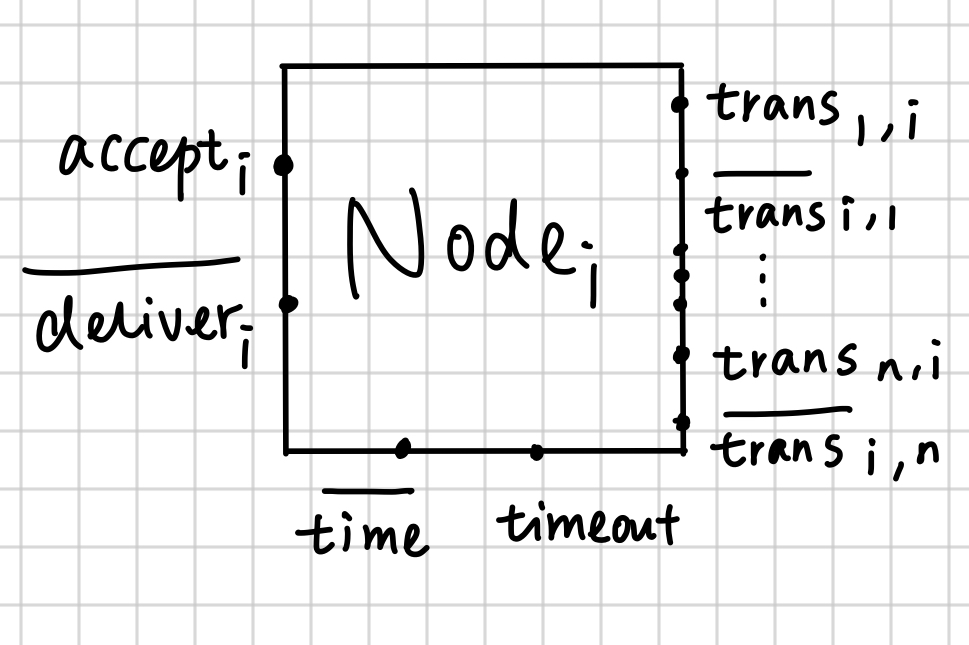 accept i
deliver i
Node i
trans 1,i
trans i,1
⋮
trans n,i
trans i,n
time
timeout